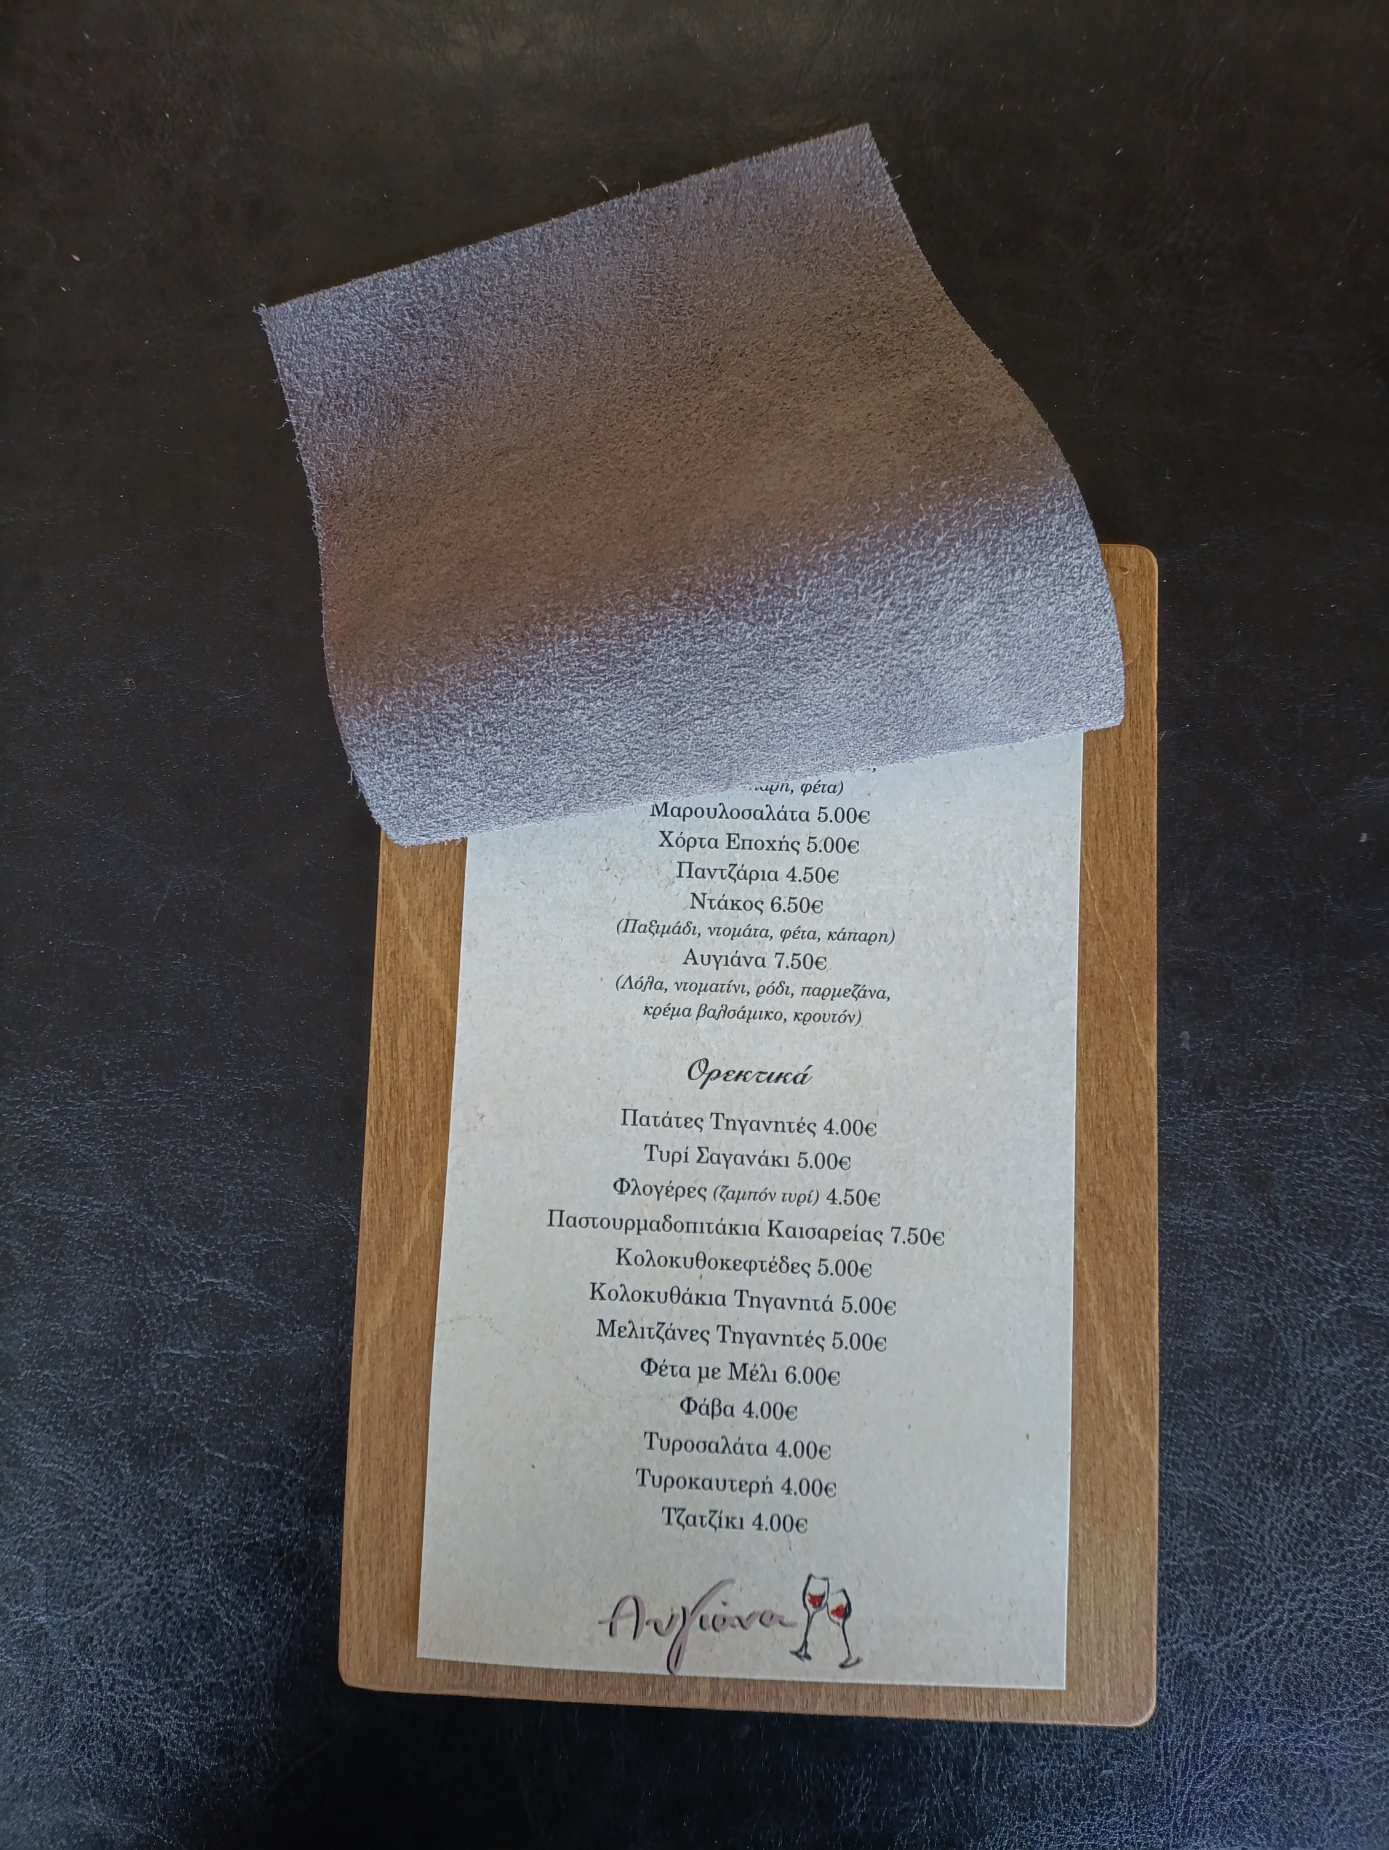 φέτα)
Μαρουλοσαλάτα 5.00€
Χόρτα Εποχής 5.00€
Παντζάρια 4.50€
Ντάκος 6.50€
(Παξιμάδι, ντομάτα, φέτα, κάπαρη)
Αυγιάνα 7.50€
(Λόλα, ντοματίνι, ρόδι, παρμεζάνα,
κρέμα βαλσάμικο, κρουτόν)
Ορεκτικά
Πατάτες Τηγανητές 4.00€
Τυρί Σαγανάκι 5.00€
Φλογέρες (ζαμπόν τυρί) 4.50€
Παστουρμαδοπιτάκια Καισαρείας 7.50€
Κολοκυθοκεφτέδες 5.00€
Κολοκυθάκια Τηγανητά 5.00€
Μελιτζάνες Τηγανητές 5.00€
Φέτα με Μέλι 6.00€
Φάβα 4.00€
Τυροσαλάτα 4.00€
Τυροκαυτερή 4.00€
Τζατζίκι 4.00€
Αυγιάνα